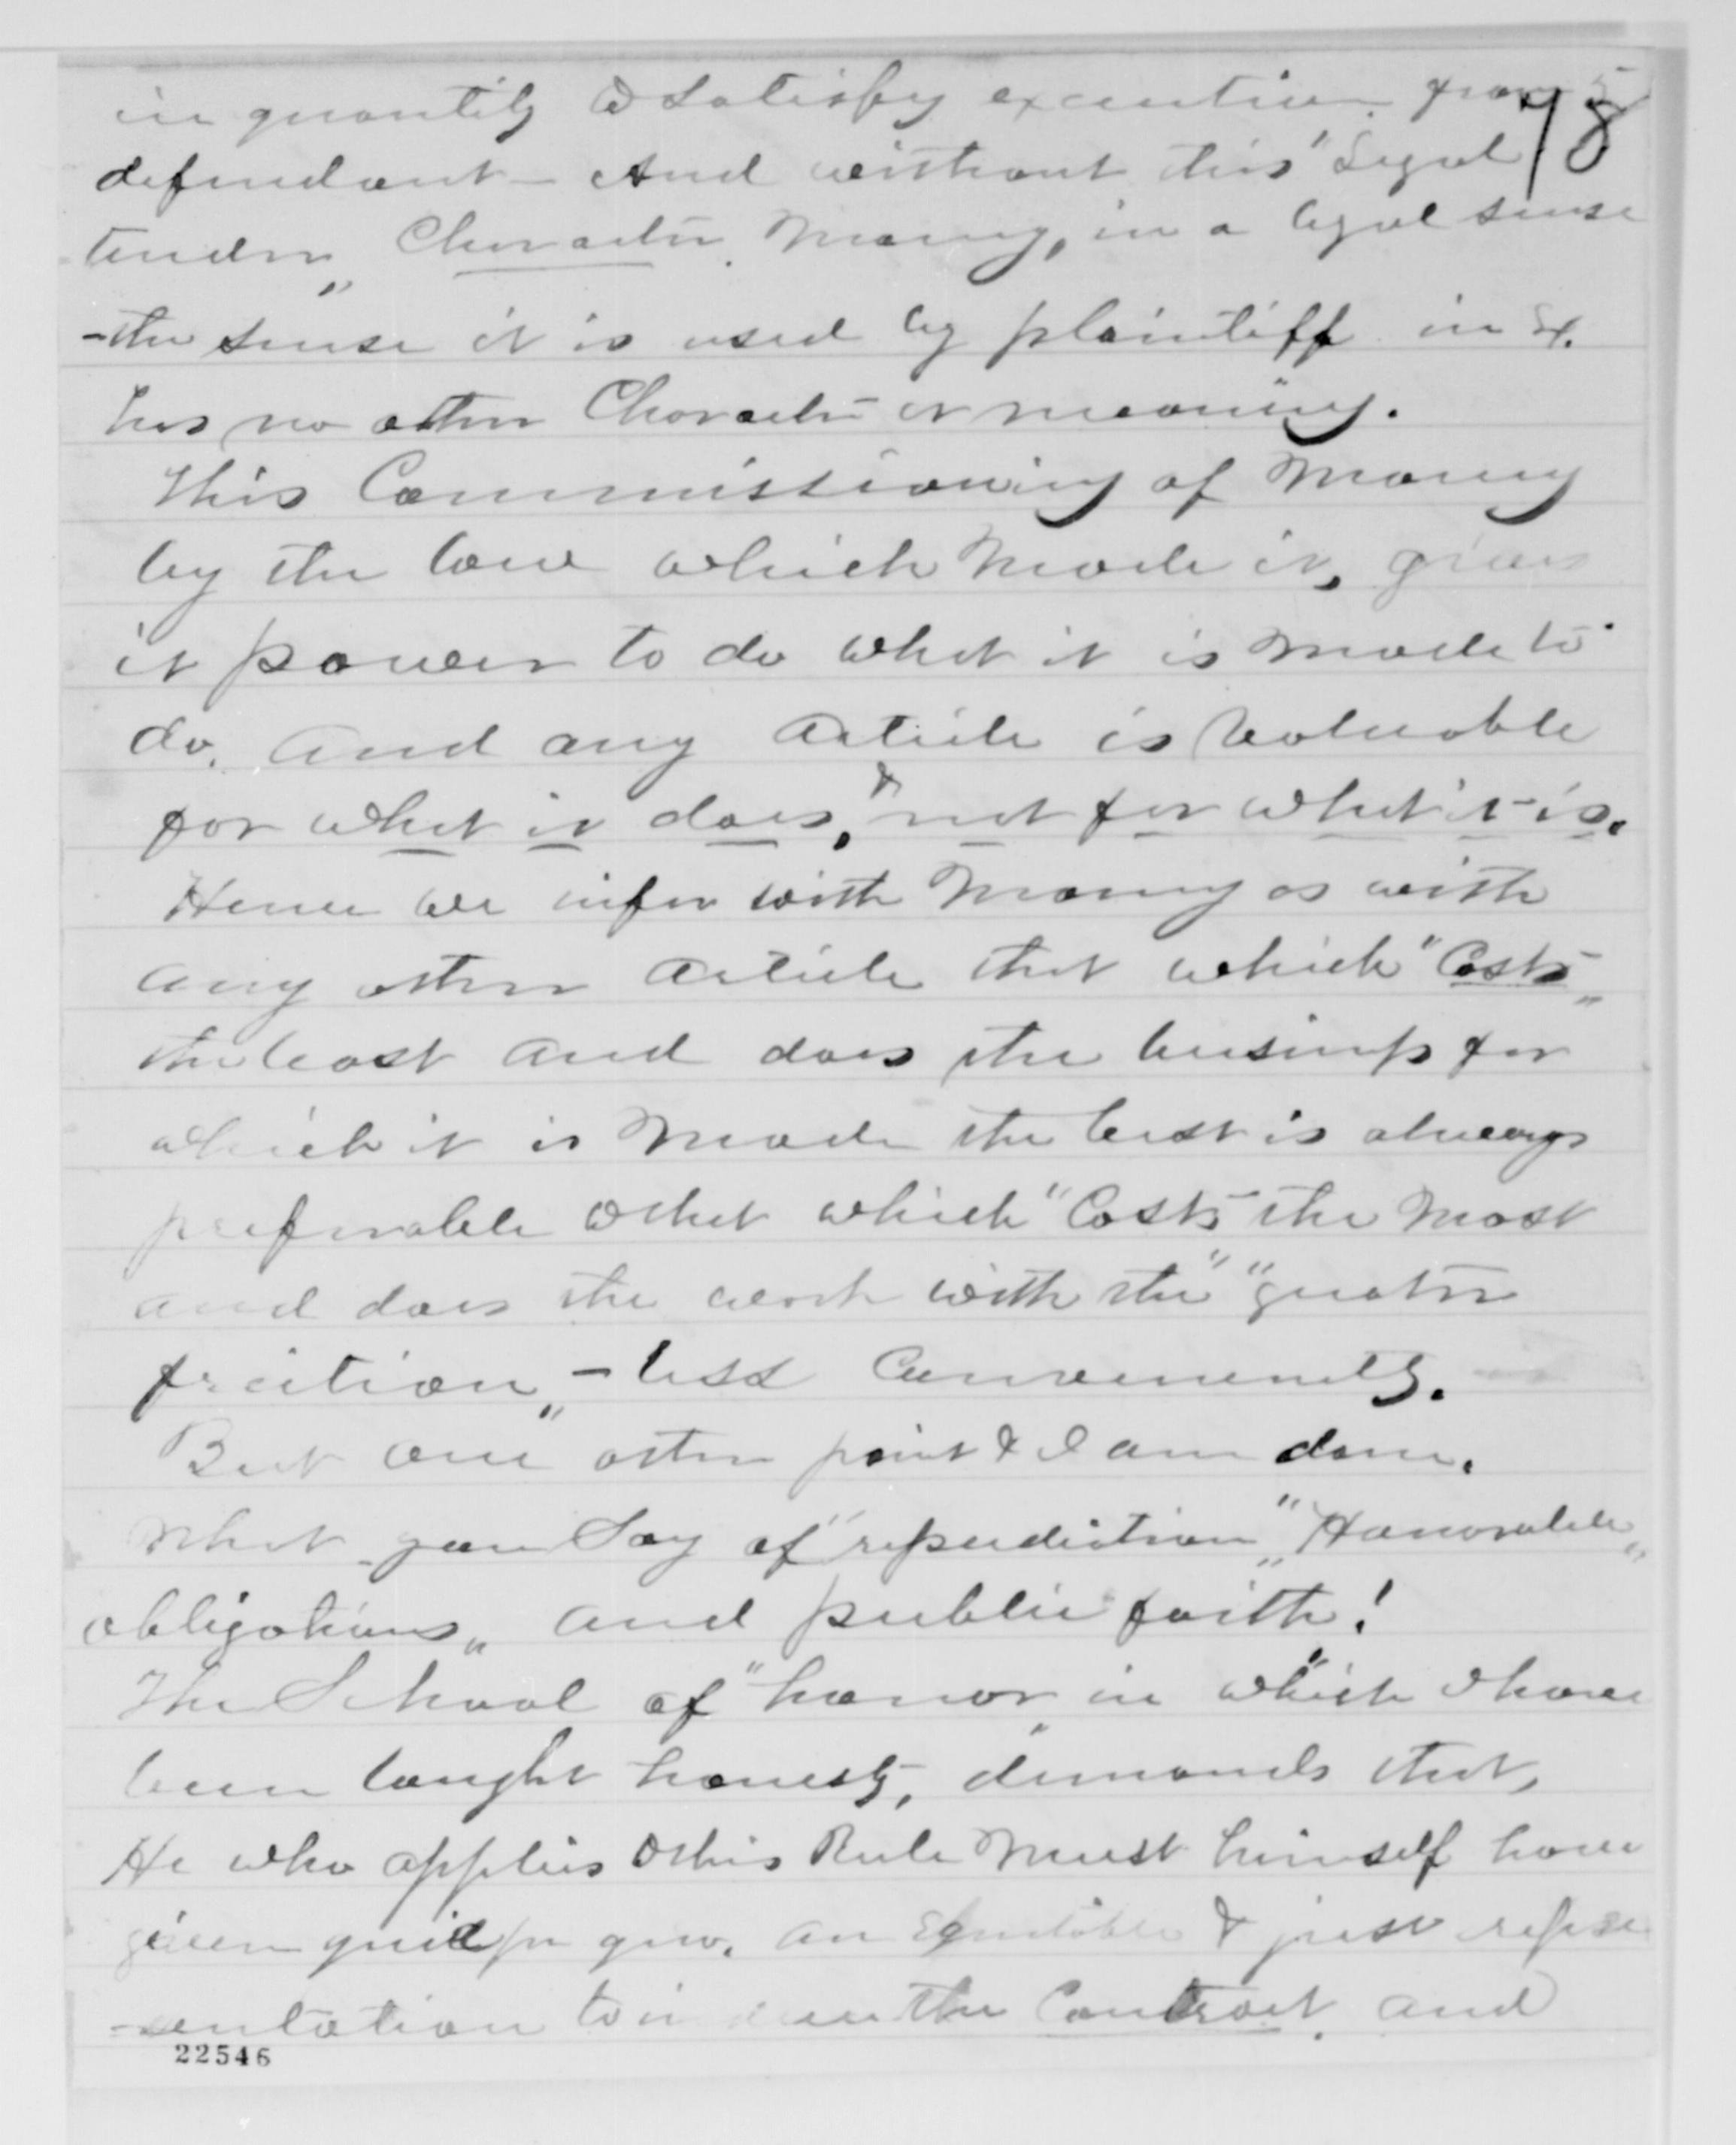 in quantity to satisfy execution from
78
defendant – And without this "Legal
tender" Character. Money, in a legal sense
– the sense it is used by plaintiff in Ex.
has no other Character or meaning.
This Commissioning of Money
by the law which Made it, gives
it power to do what it is Made to
do. And any article is valuable
for what it does, & not for what it is.
Hence we infer with Money as with
any other article that which "Costs"
the least and does the business for
which it is Made the best is always
preferable to that which "Costs" the Most
and does the work with the "greater
friction" – less Conveniently.
But one other point & I am done.
What you Say of "repudiation" "Honorable"
obligations" and public faith!
The School of "honor" in which I have
been taught honesty, demands that,
He who applies to this Rule Must himself have
given quid pro quo. an Equitable & just repre
-sentation to in the Contract. and
22546